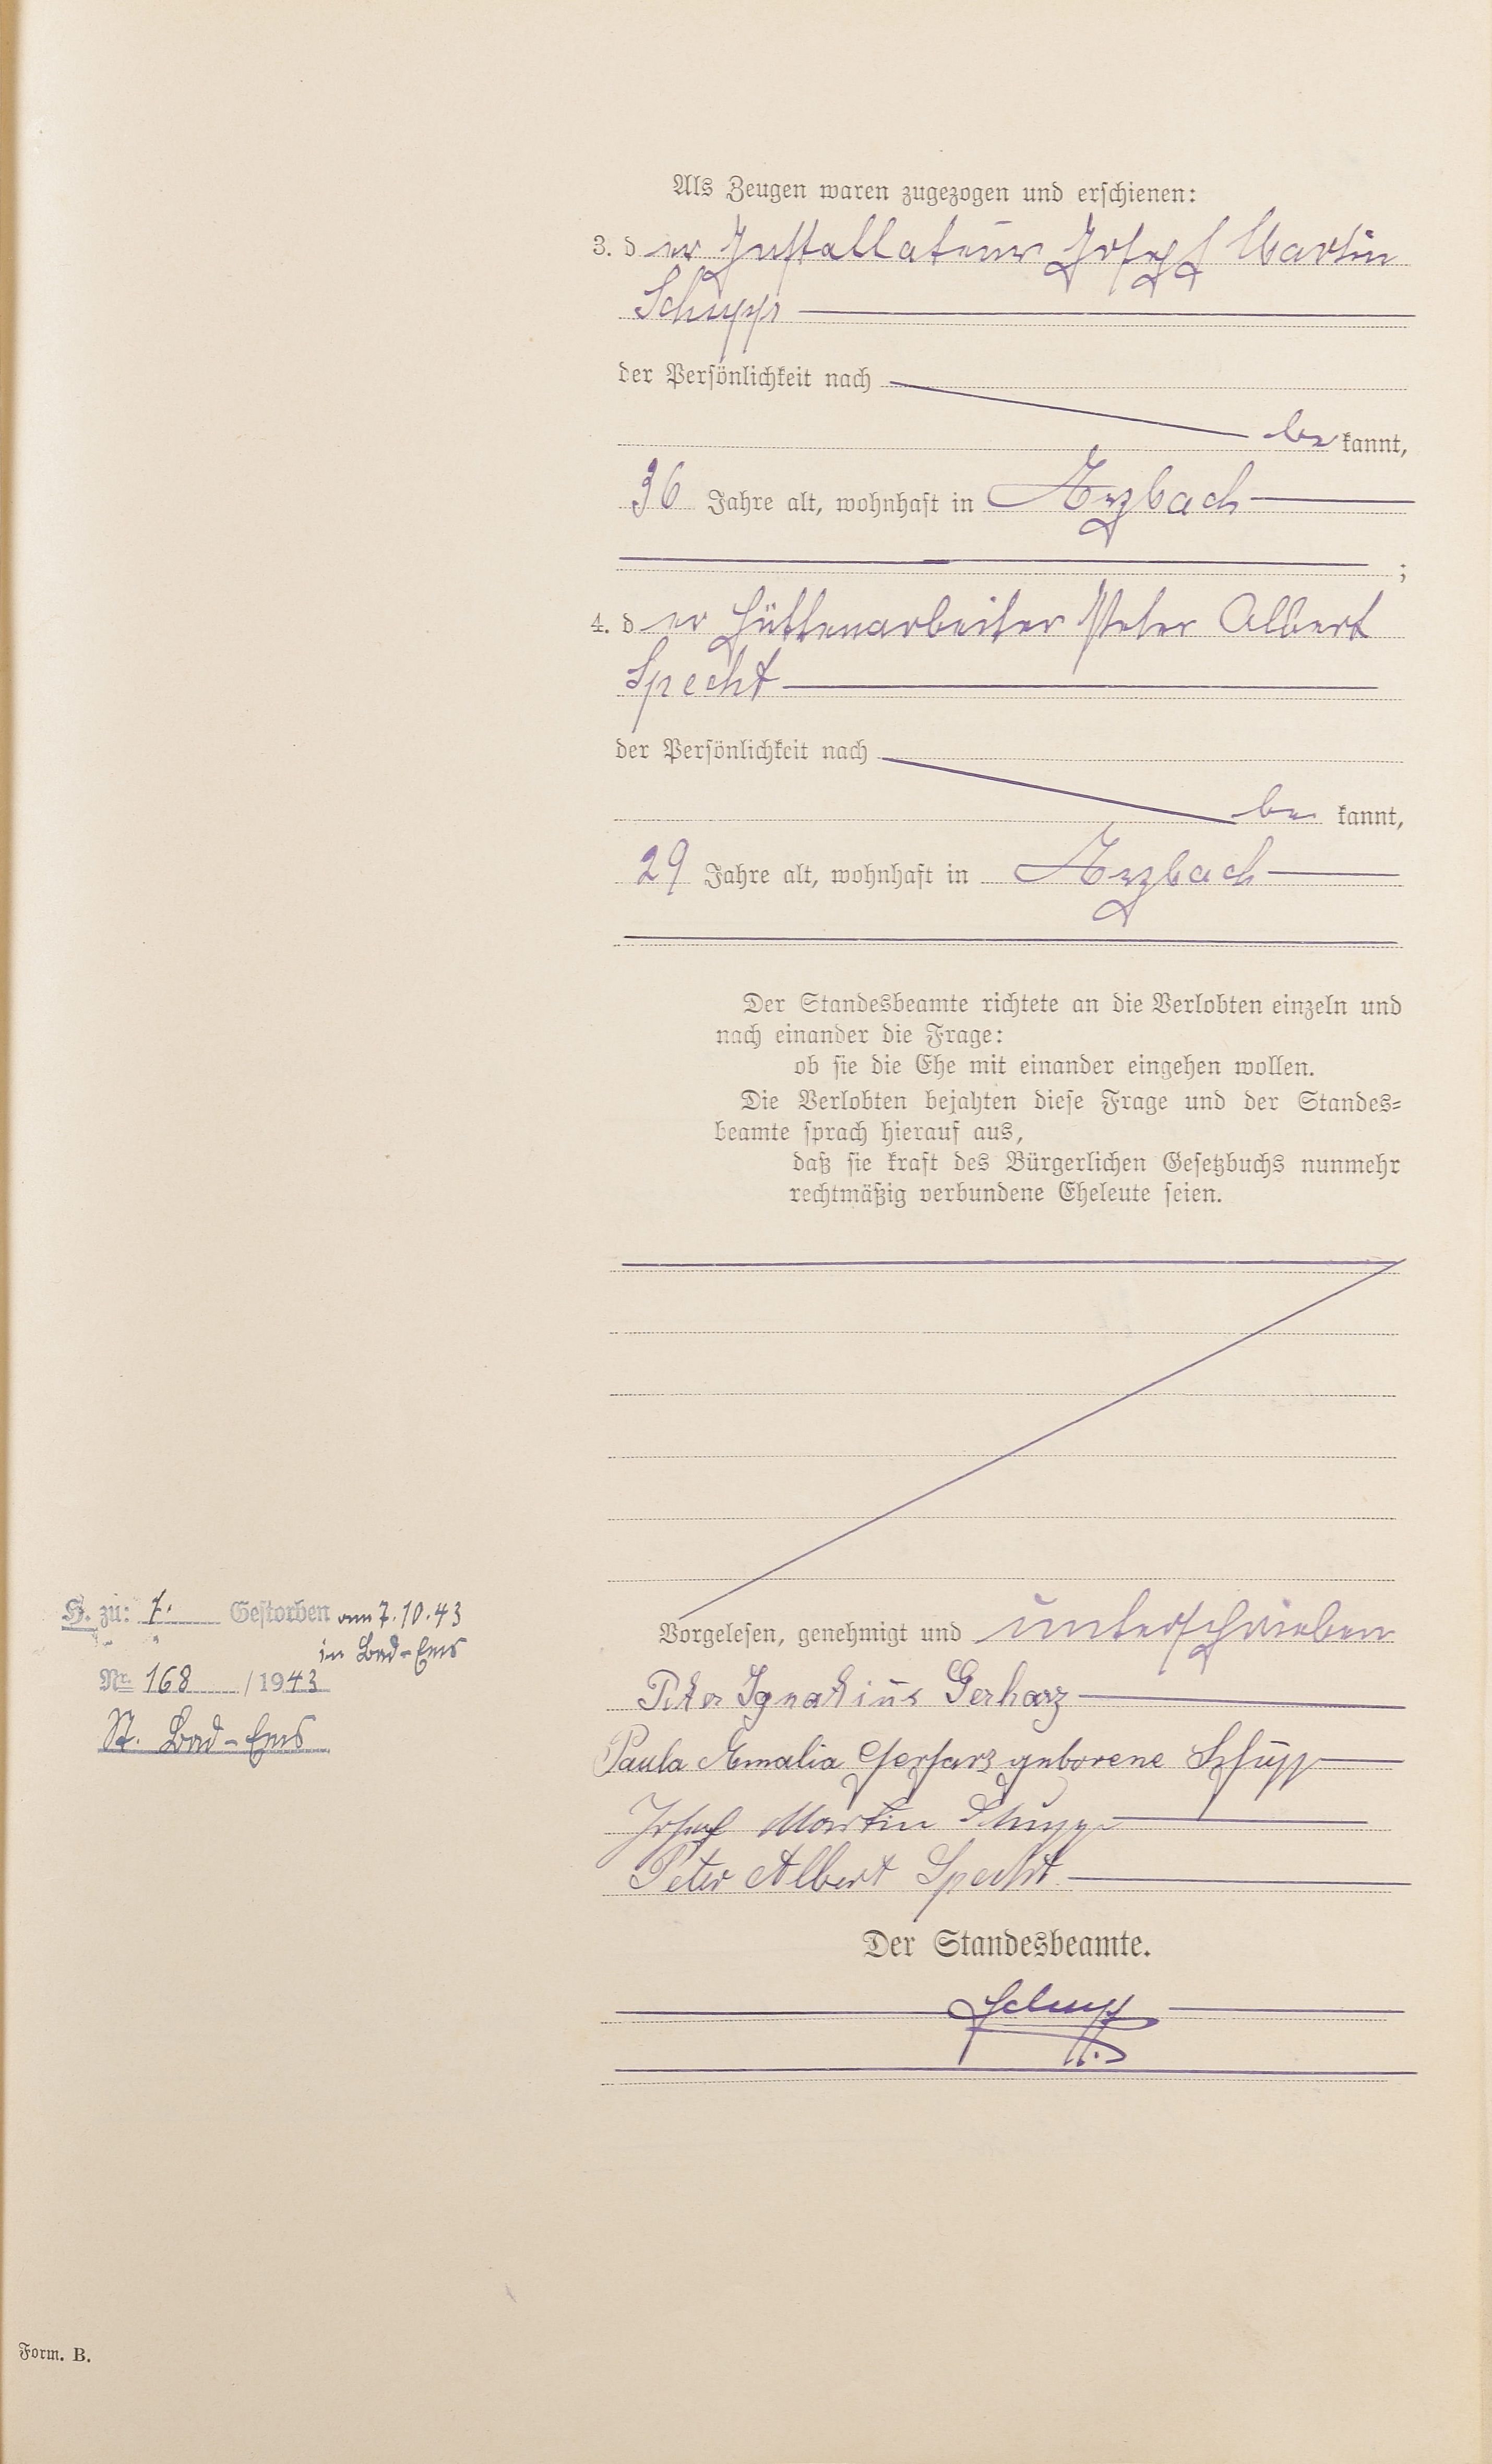 Als Zeugen waren zugezogen und erschienen:
3. der Installateur Josef Martin
Schupp
der Persönlichkeit nach
bekannt,
36 Jahre alt, wohnhaft in Arzbach
;
4. der Hüttenarbeiter Peter Albert
Specht
der Persönlichkeit nach
bekannt,
29 Jahre alt, wohnhaft in Arzbach
Der Standesbeamte richtete an die Verlobten einzeln und
nach einander die Frage:
ob sie die Ehe mit einander eingehen wollen.
Die Verlobten bejahten diese Frage und der Standes=
beamte sprach hierauf aus,
daß sie kraft des Bürgerlichen Gesetzbuchs nunmehr
rechtmäßig verbundene Eheleute seien.
Vorgelesen, genehmigt und unterschrieben
Peter Ignatius Gerharz
Paula Amalia Gerharz geborene Schupp
Josef Martin Schupp
Peter Albert Specht
Der Standesbeamte.
Schupp
H. zu: 1. Gestorben am 7.10.43
in Bad-Ems
Nr. 168 /1943
St. Bad-Ems
Form. B.